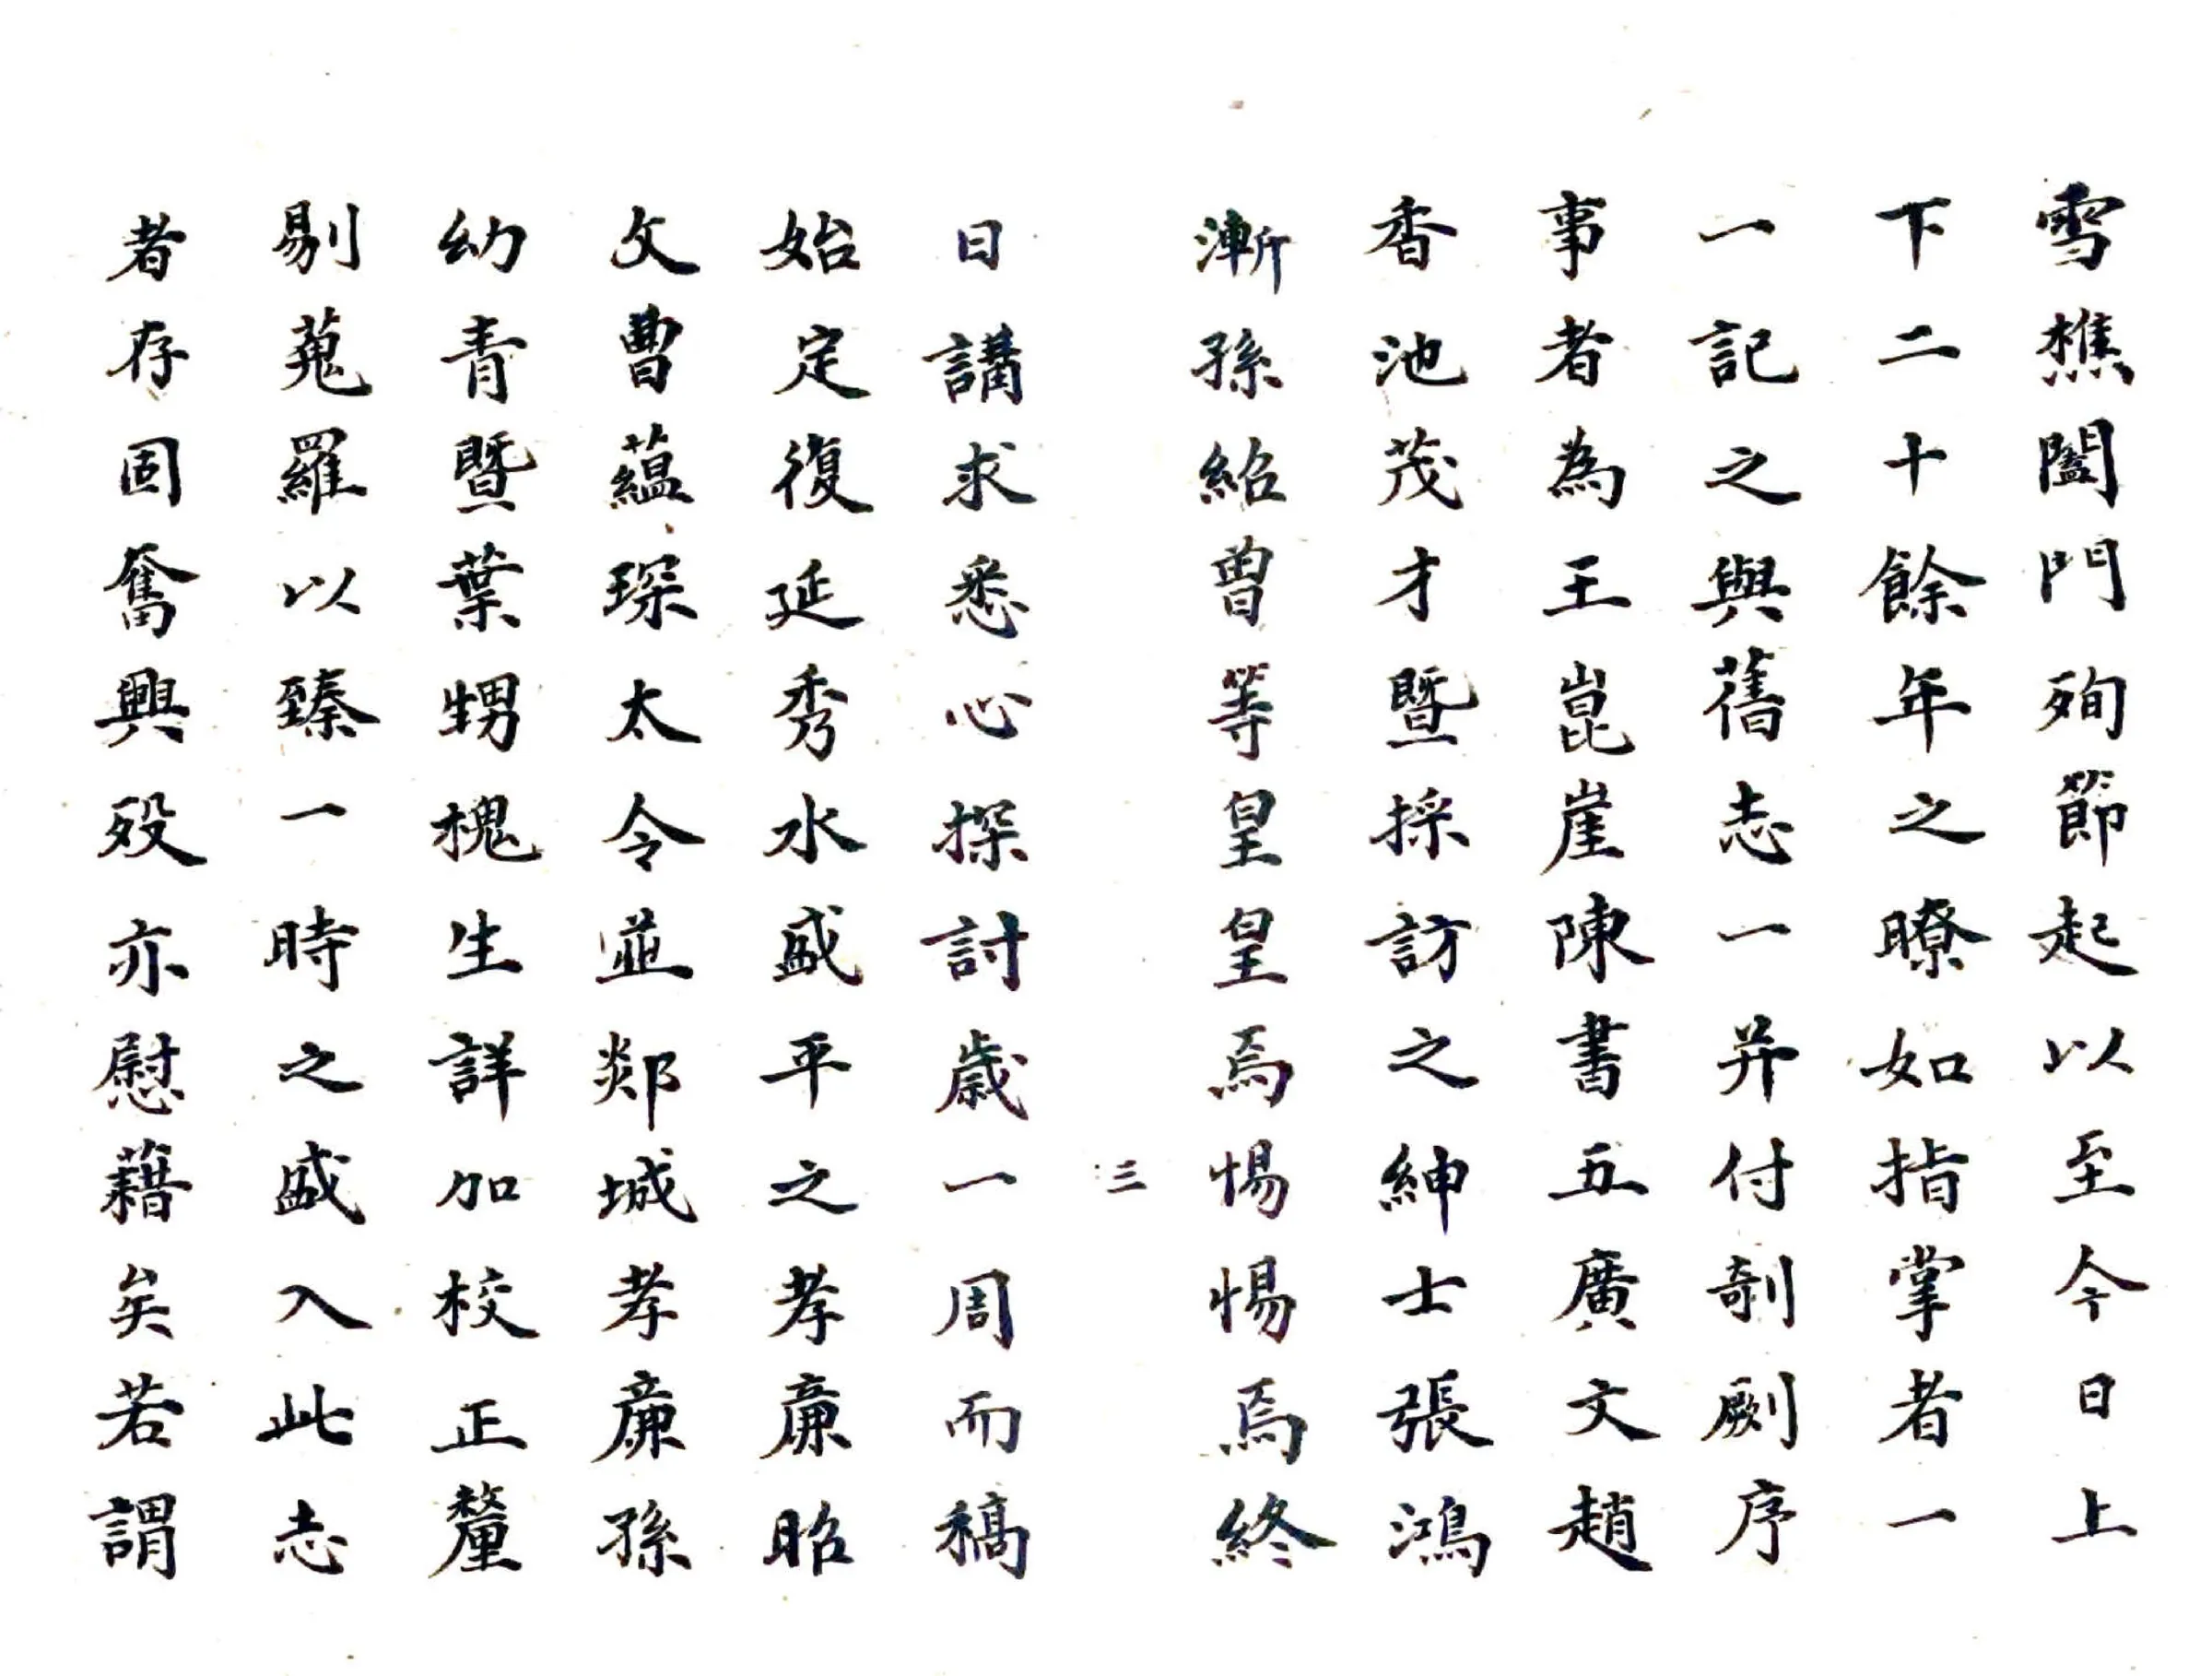 雪樵闔門殉節起以至今日上
下二十餘年之瞭如指掌者一
一記之與舊志一并付剞劂序
事者為王崑崖陳書五廣文趙
香池茂才暨採訪之紳士張鴻
漸孫紹曾等皇皇焉惕惕焉終
三
日講求悉心探討歲一周而稿
始定復延秀水盛平之孝廉昭
文曹蘊琛太令並郯城孝廉孫
幼青暨葉甥槐生詳加校正釐
剔蒐羅以臻一時之盛入此志
者存固奮興歿亦慰藉矣若謂